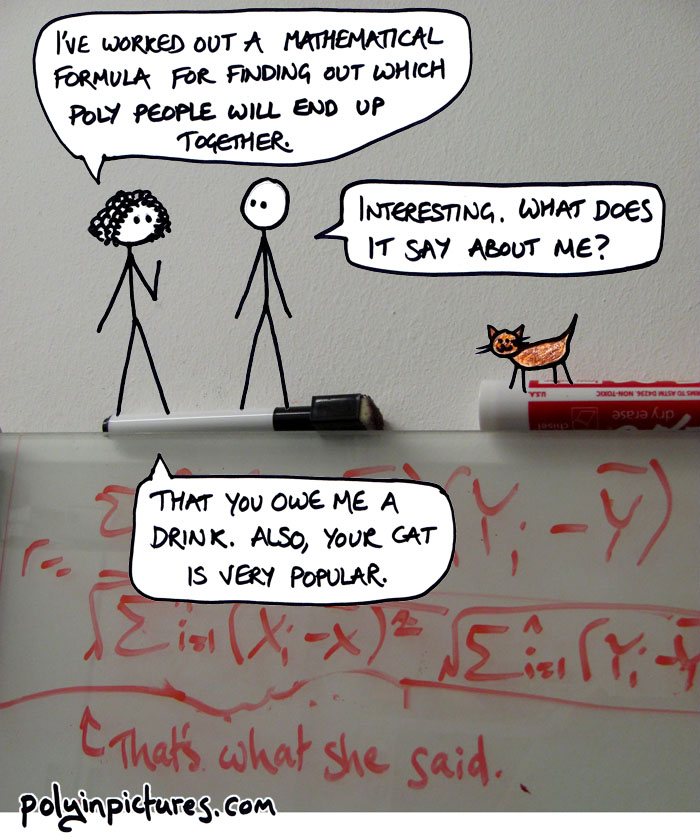 I'VE WORKED OUT A MATHEMATICAL
FORMULA FOR FINDING OUT WHICH
POLY PEOPLE WILL END UP
TOGETHER.
INTERESTING. WHAT DOES
IT SAY ABOUT ME?
TO ASTM D4236. NON-TOXIC
dry erase
chisel
THAT YOU OWE ME A
DRINK. ALSO, YOUR CAT
IS VERY POPULAR.
r= Σ (Yᵢ - Y̅)
√Σ i=1 (Xᵢ - X̅)² √Σ i=1 (Yᵢ - Y̅
That's what she said.
polyinpictures.com